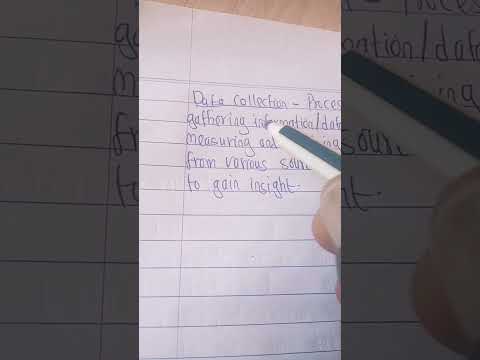 Data Collection - Proces
gathering information/data
measuring and
from various
to gain insight.